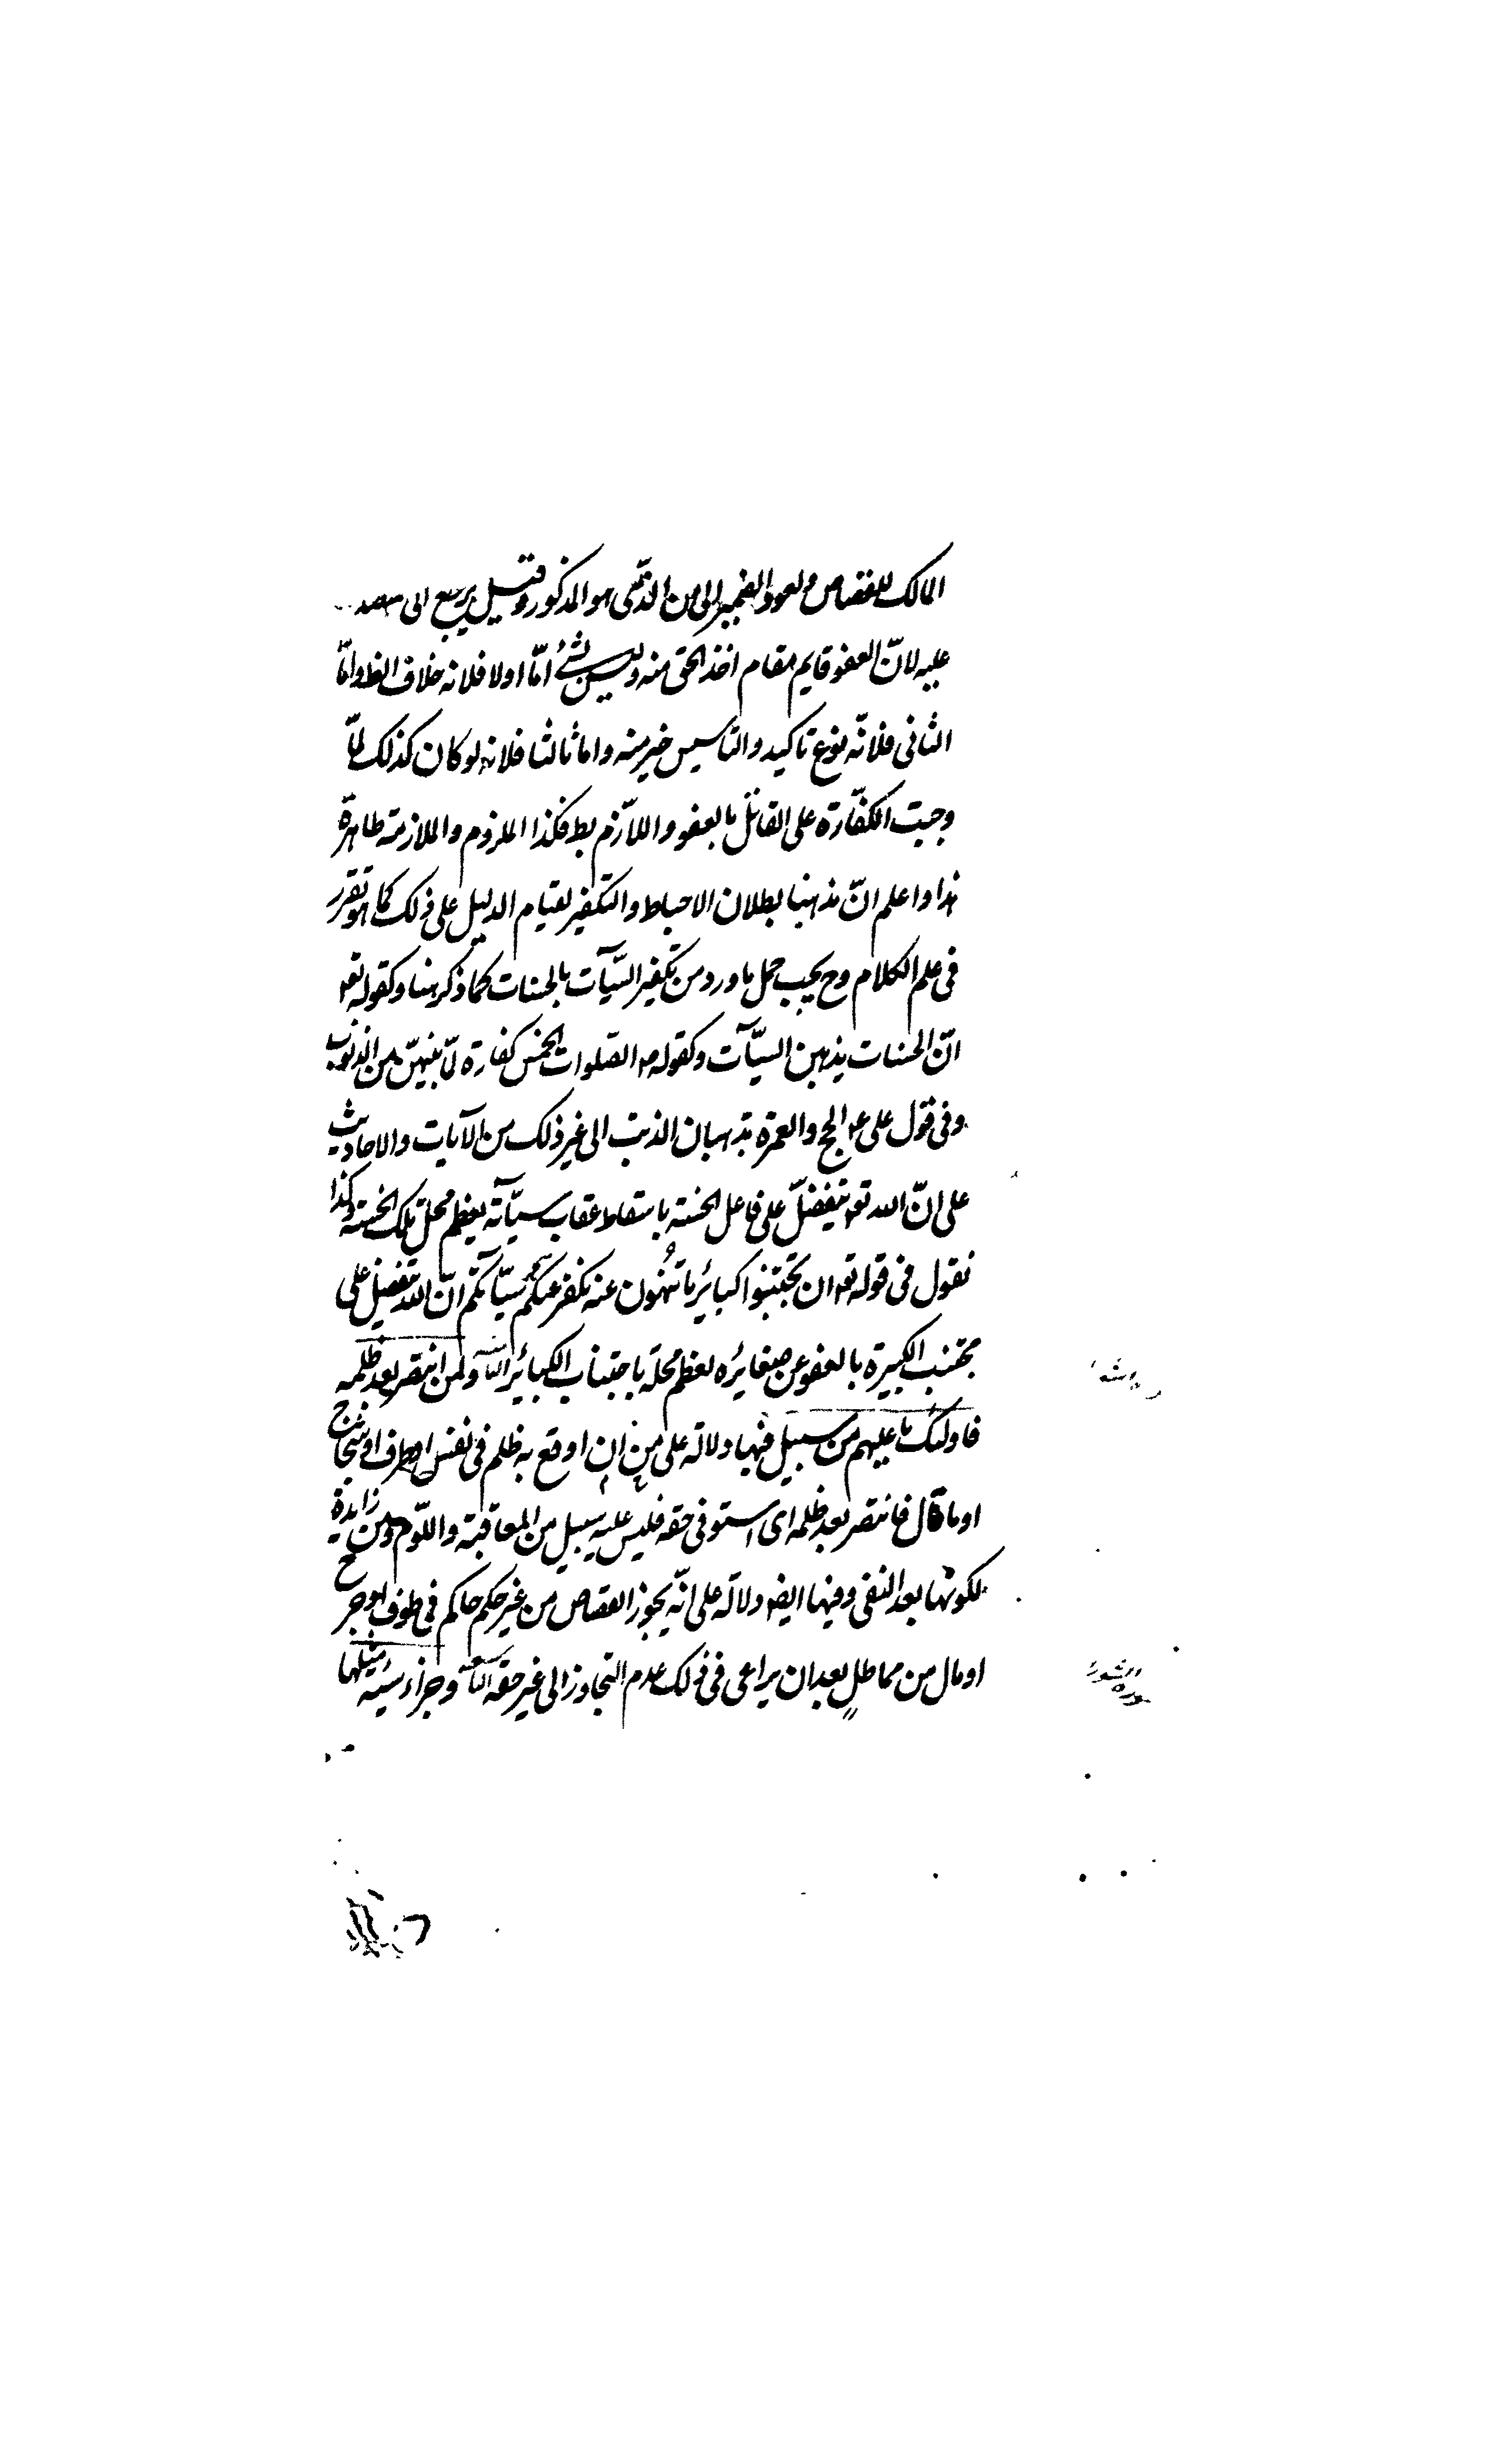 المالك للقصاص ويعود الضمير الى من الذى هو المذكور وقيل يرجع الى
عليه لانّ العفو قايم مقام اخذ الحق منه وليس بشئ امّا اولا فلانه خلاف الظ وامّا
الثانى فلانّه نوع تاكيد والتاسيس خير منه واما ثالثا فلانه لو كان كذلك لمّا
وجبت الكفّارة على القاتل بالعفو واللاّزم بط فكذا الملزوم والملازمة ظاهرة
هذا واعلم انّ مذهبنا بطلان الاحباط والتكفير لقيام الدليل على ذلك كما هو تقرر
فى علم الكلام وح يجب حمل ما ورد من تكفير السّيآت بالحسنات كما ذكر هنا وكقوله تعو
انّ الحسنات يذهبن السيّآت وكقوله ص الصّلوات الخمس كفارة لمّا بينهنّ من الذنوب
وفى قول على ع الحج والعمرة يذهبان الذنب الى غير ذلك من الآيات والاحاديث
على انّ الله تعو يتفضّل على فاعل الحسنة باسقاط عقاب سيّآته لعظم محلّ تلك الحسنة وكذا
نقول فى قوله تعو ان تجتنبوا كبائر ما تنهون عنه نكفر عنكم سيّآتكم انّ الله يتفضل على
مجتنب الكبيرة بالعفو عن صغائره لعظم محلّه باجتناب الكبائر ولمن انتصر بعد ظلمه
فاولئك ما عليهم من سبيل فيها دلالة على من ان اوقع به ظلم فى نفس او طرف او شجاج
او مال فانتصر بعد ظلمه اى استوفى حقه فليس عليه سبيل من المعاقبة واللوّم ومن زايدة
لكونها بعد النفى وفيها ايض دلالة على انّه يجوز القصاص من غير حكم حاكم فى طرف او جرح
او مال من مماطل بعد ان يراعى فى ذلك عدم التجاوز الى غير حقه وجزاء سيئة مثلها